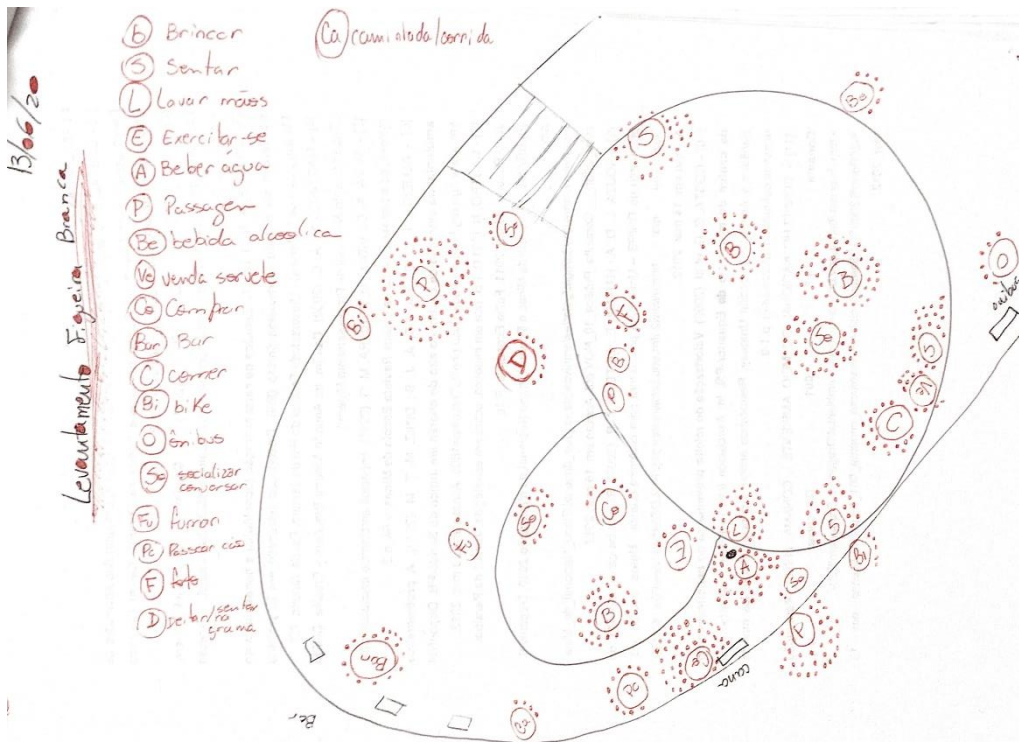 13/06/20
Levantamento Figueira Branca
b Brincar
S Sentar
L Lavar mãos
E Exercitar-se
A Beber água
P Passagem
Be bebida alcoolica
Ve venda sorvete
Co Comprar
Bar Bar
C comer
Bi bike
O ônibus
So socializar
conversar
Fu fumar
Pc Passear cão
F foto
D Deitar/sentar
na grama
Ca caminhada/corrida
Be
S
So
B
B
O
onibus
P
Bi
F
So
S
B
D
Ve
P
C
Co
So
L
S
Fu
E
A
Bi
So
B
P
Bar
Pc
Ca
cana
Bar